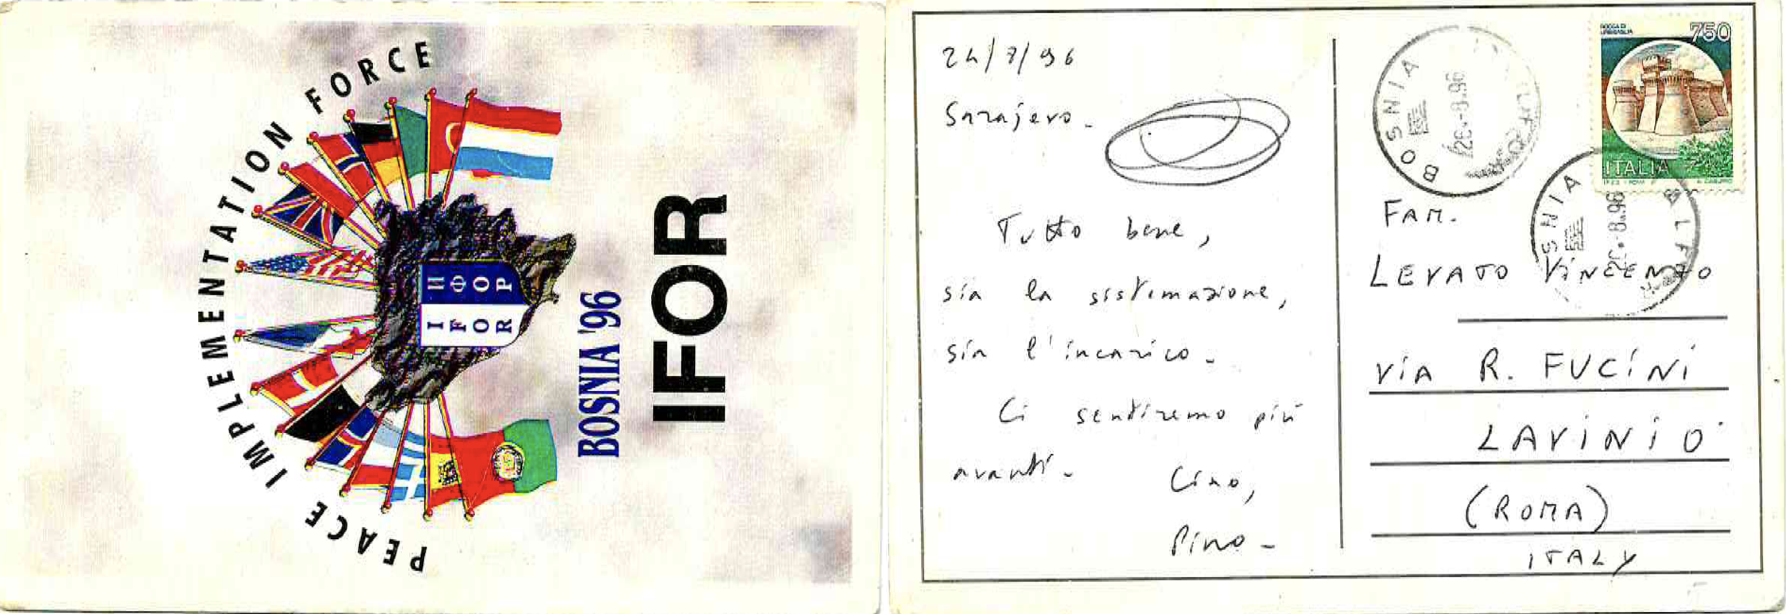 PEACE IMPLEMENTATION FORCE
ИФОР
IFOR
BOSNIA '96
IFOR
24/8/96
Sarajevo.
Tutto bene,
sia la sistemazione,
sia l'incarico.
Ci sentiremo più
avanti.
Ciao,
Pino.
ROCCA DI
URBISAGLIA
750
ITALIA
BOSNIA
26.-8.96
BOSNIA
26.-8.96
FAM.
LEVATO VINCENZO
VIA R. FUCINI
LAVINIO
(ROMA)
ITALY